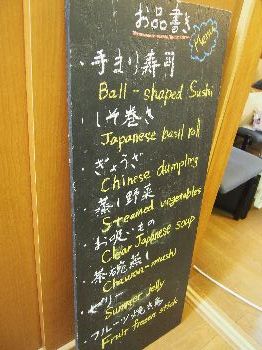 お品書き
Menu
・手まり寿司
Ball-shaped Sushi
・しそ巻き
Japanese basil roll
・ぎょうざ
Chinese dumpling
・蒸し野菜
Steamed vegetables
・お吸いもの
Clear Japanese soup
・茶碗蒸し
Chawan-mushi
・ゼリー
Summer Jelly
・フルーツ焼き鳥
Fruit frozen stick